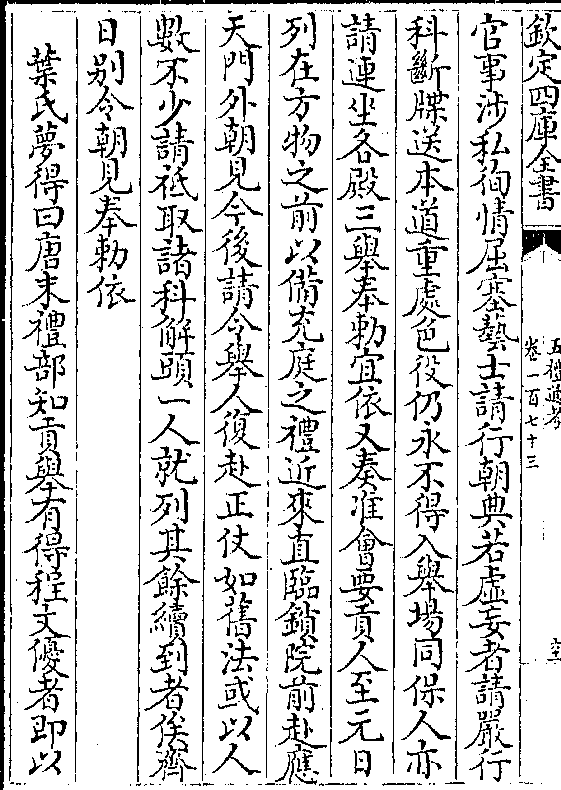 欽定四庫全書
五禮通考
卷一百七十三
官事涉私徇情屈塞藝士請行朝典若虛妄者請嚴行
科斷牒送本道重處色役仍永不得入舉場同保人亦
請連坐各殿三舉奉勅宜依又奏准會要貢人至元日
列在方物之前以備充庭之禮近來直臨鎖院前赴應
天門外朝見今後請令舉人復赴正仗如舊法或以人
數不少請祗取諸科解頭一人就列其餘續到者俟齊
日別令朝見奉勅依
葉氏夢得曰唐末禮部知貢舉有得程文優者即以